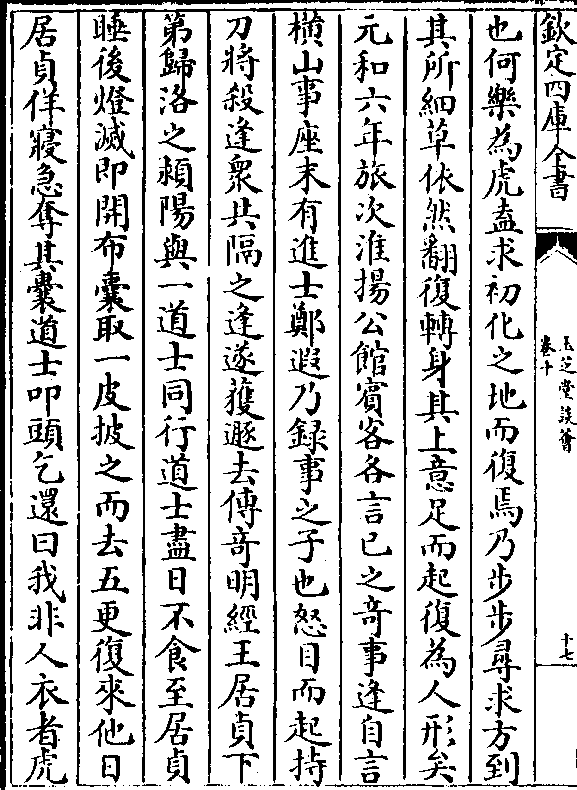 欽定四庫全書
玉芝堂談薈
卷十
十七
也何樂為虎盍求初化之地而復焉乃步步尋求方到
其所細草依然翻復轉身其上意足而起復為人形矣
元和六年旅次淮揚公館賓客各言已之奇事逢自言
横山事座末有進士鄭遐乃録事之子也怒目而起持
刀將殺逢衆共隔之逢遂獲遯去傳奇明經王居貞下
第歸洛之潁陽與一道士同行道士盡日不食至居貞
睡後燈滅即開布囊取一皮披之而去五更復來他日
居貞佯寢急奪其囊道士叩頭乞還曰我非人衣者虎